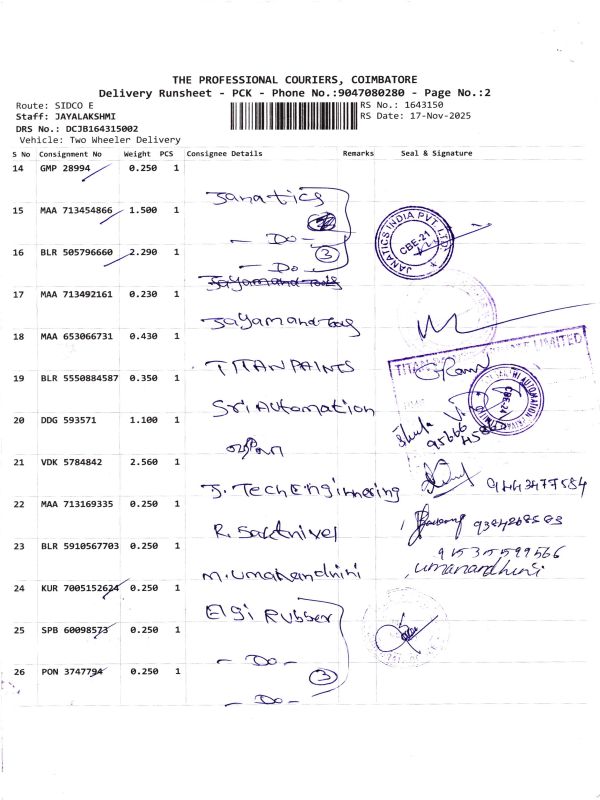 THE PROFESSIONAL COURIERS, COIMBATORE
Delivery Runsheet - PCK - Phone No.:9047080280 - Page No.:2
Route: SIDCO E
RS No.: 1643150
Staff: JAYALAKSHMI
RS Date: 17-Nov-2025
DRS No.: DCJB164315002
Vehicle: Two Wheeler Delivery
S No Consignment No Weight PCS Consignee Details Remarks Seal & Signature
14 GMP 28994 0.250 1 Janatics
15 MAA 713454866 1.500 1 - Do -
JANATICS INDIA PVT. LTD. CBE-21
16 BLR 505796660 2.290 1 - Do - 3
17 MAA 713492161 0.230 1 Jayamand Tools
18 MAA 653066731 0.430 1 TITAN PAINTS
19 BLR 5550884587 0.350 1 Sri Automation
CBE-24
20 DDG 593571 1.100 1
21 VDK 5784842 2.560 1 J. Tech Enginnering 9443477584
22 MAA 713169335 0.250 1 R. Sakthivel
23 BLR 5910567703 0.250 1 M. Umanandhini 9535599566
umanandhini
24 KUR 7005152624 0.250 1 Elgi Rubber
25 SPB 60098573 0.250 1 - Do -
26 PON 3747794 0.250 1 - Do - 3